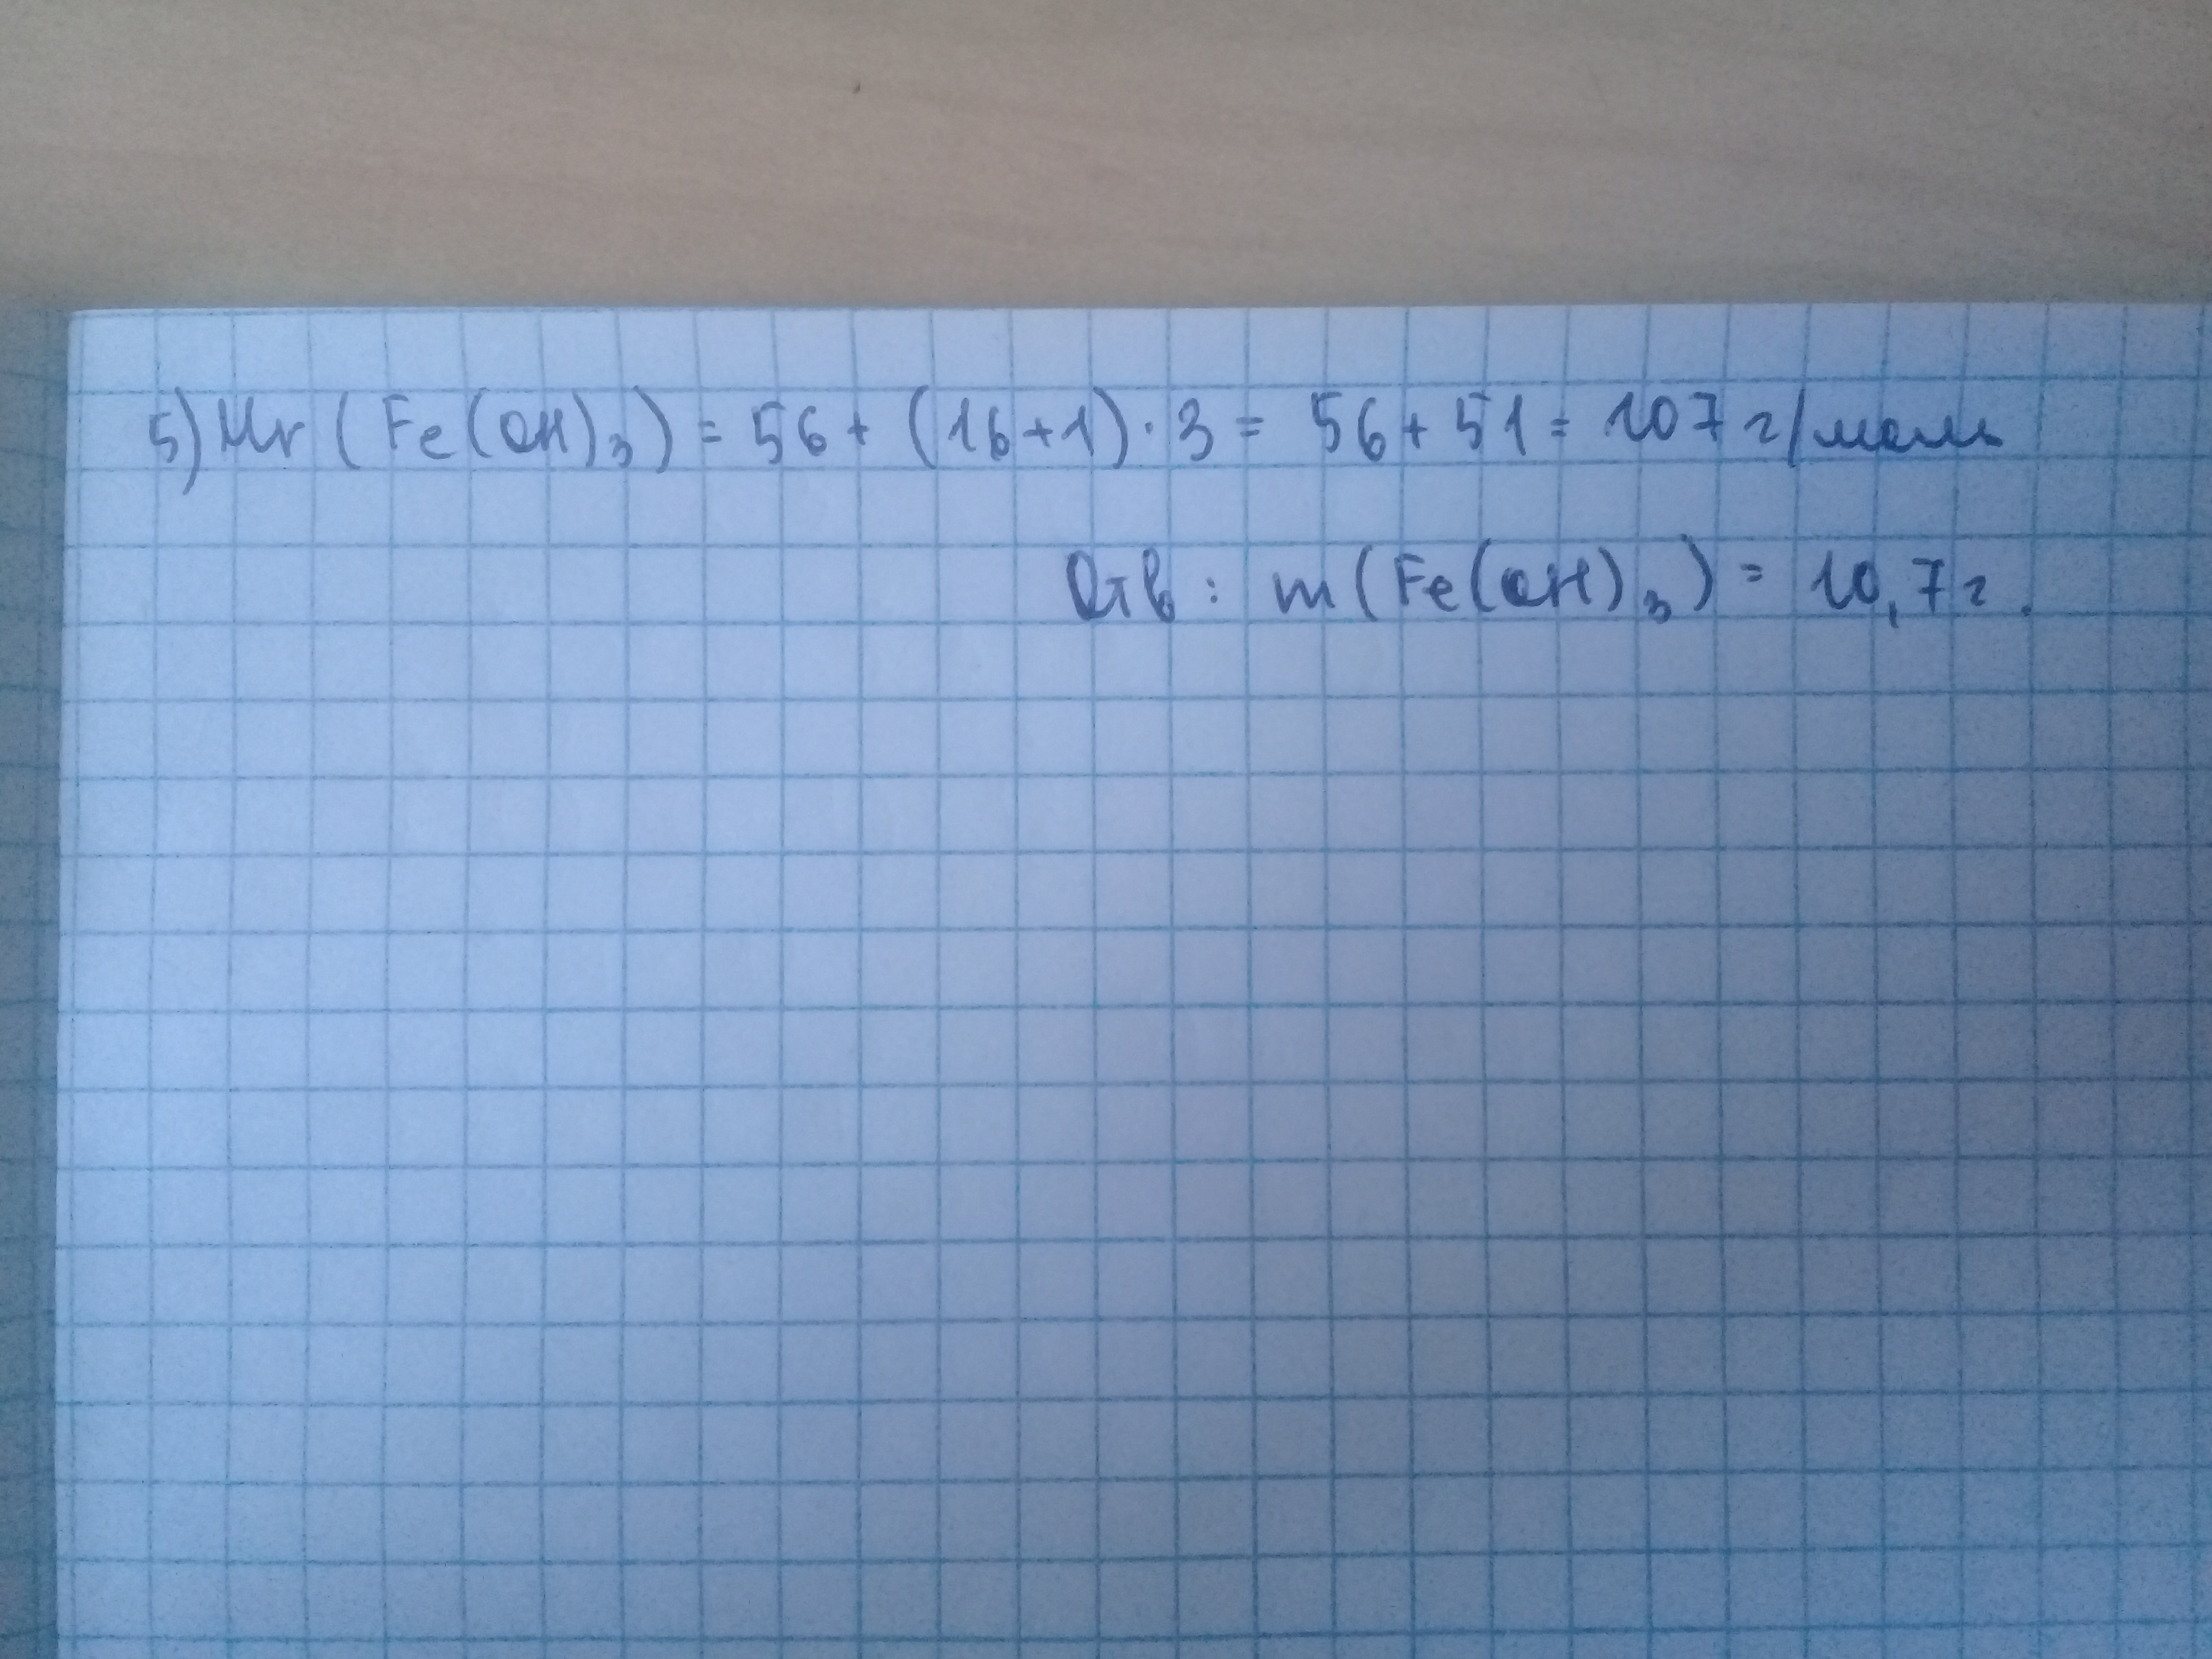 5) Mr (Fe(OH)₃) = 56 + (16+1)·3 = 56 + 51 = 107 г/моль
Отв: m(Fe(OH)₃) = 10,7г.